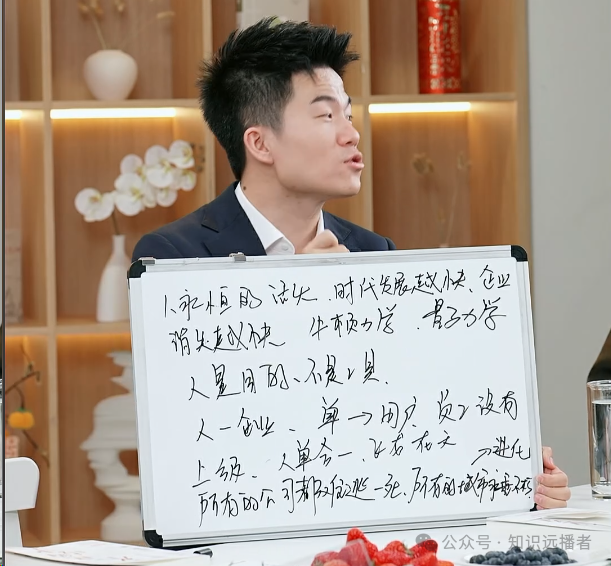 1、永恒的活火、时代发展越快、企业
消失越快 牛顿力学、量子力学
人是目的、不是工具、
人一企业、单→用户、员工没有
上级、人单合一、
→进化
所有的公司都难逃一死、所有的城市
公众号·知识远播者